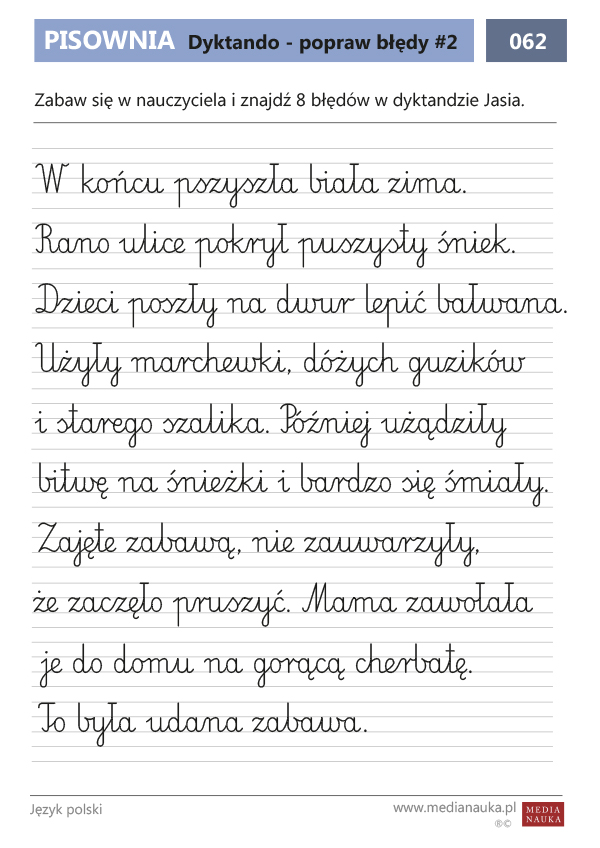 PISOWNIA Dyktando - popraw błędy #2 062
Zabaw się w nauczyciela i znajdź 8 błędów w dyktandzie Jasia.
W końcu pszyszła biała zima.
Rano ulice pokrył puszysty śniek.
Dzieci poszły na dwur lepić bałwana.
Użyły marchewki, dóżych guzików
i starego szalika. Później użądziły
bitwę na śnieżki i bardzo się śmiały.
Zajęte zabawą, nie zauwarzyły,
że zaczęło pruszyć. Mama zawołała
je do domu na gorącą cherbatę.
To była udana zabawa.
Język polski www.medianauka.pl MEDIA
NAUKA
®©